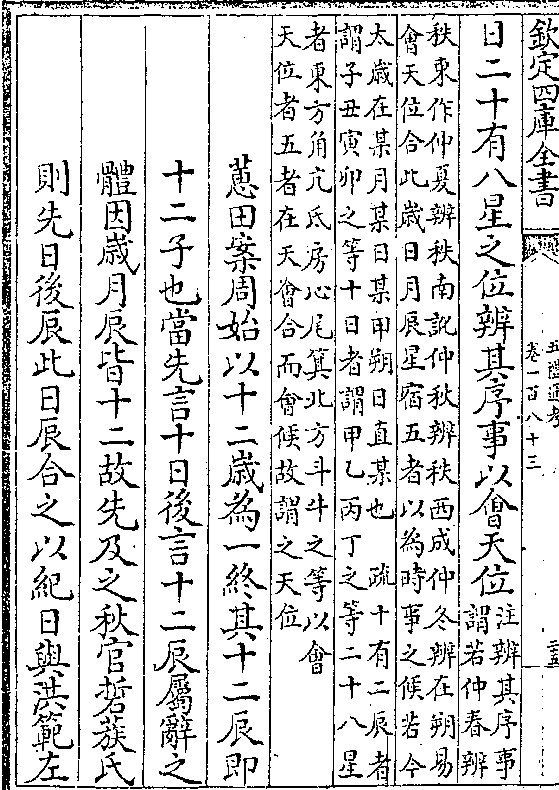 欽定四庫全書
五禮通考
卷一百八十三
三五
日二十有八星之位辨其序事以會天位
注辨其序事
謂若仲春辨
秩東作仲夏辨秩南訛仲秋辨秩西成仲冬辨在朔易
會天位合此歲日月辰星宿五者以為時事之候若今
太歲在某月某日某甲朔日直某也 疏十有二辰者
謂子丑寅卯之等十日者謂甲乙丙丁之等二十八星
者東方角亢氐房心尾箕北方斗牛之等以會
天位者五者在天會合而會候故謂之天位
蕙田案周始以十二歲為一終其十二辰即
十二子也當先言十日後言十二辰屬辭之
體因歲月辰皆十二故先及之秋官硩蔟氏
則先日後辰此日辰合之以紀日與洪範左